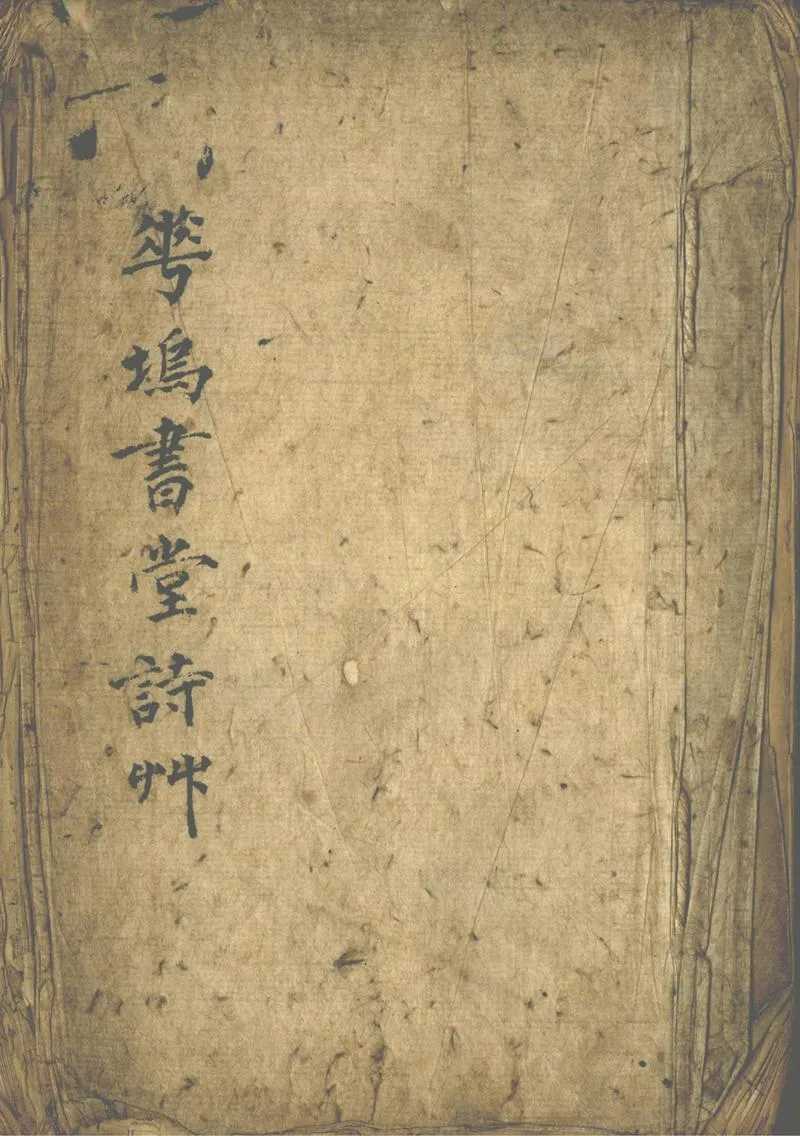 𠌶塢書堂詩艸